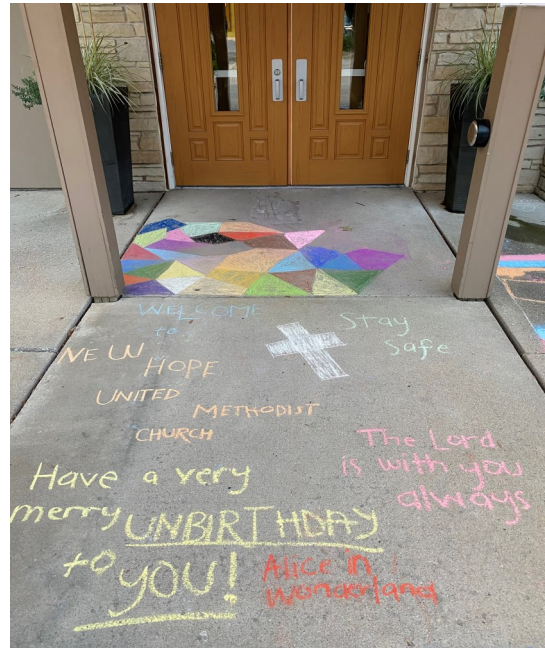 WELCOME
to
NEW
HOPE
UNITED
METHODIST
CHURCH
Stay
Safe
The Lord
is with you
always
Have a very
merry UNBIRTHDAY
to YOU!
Alice in
Wonderland